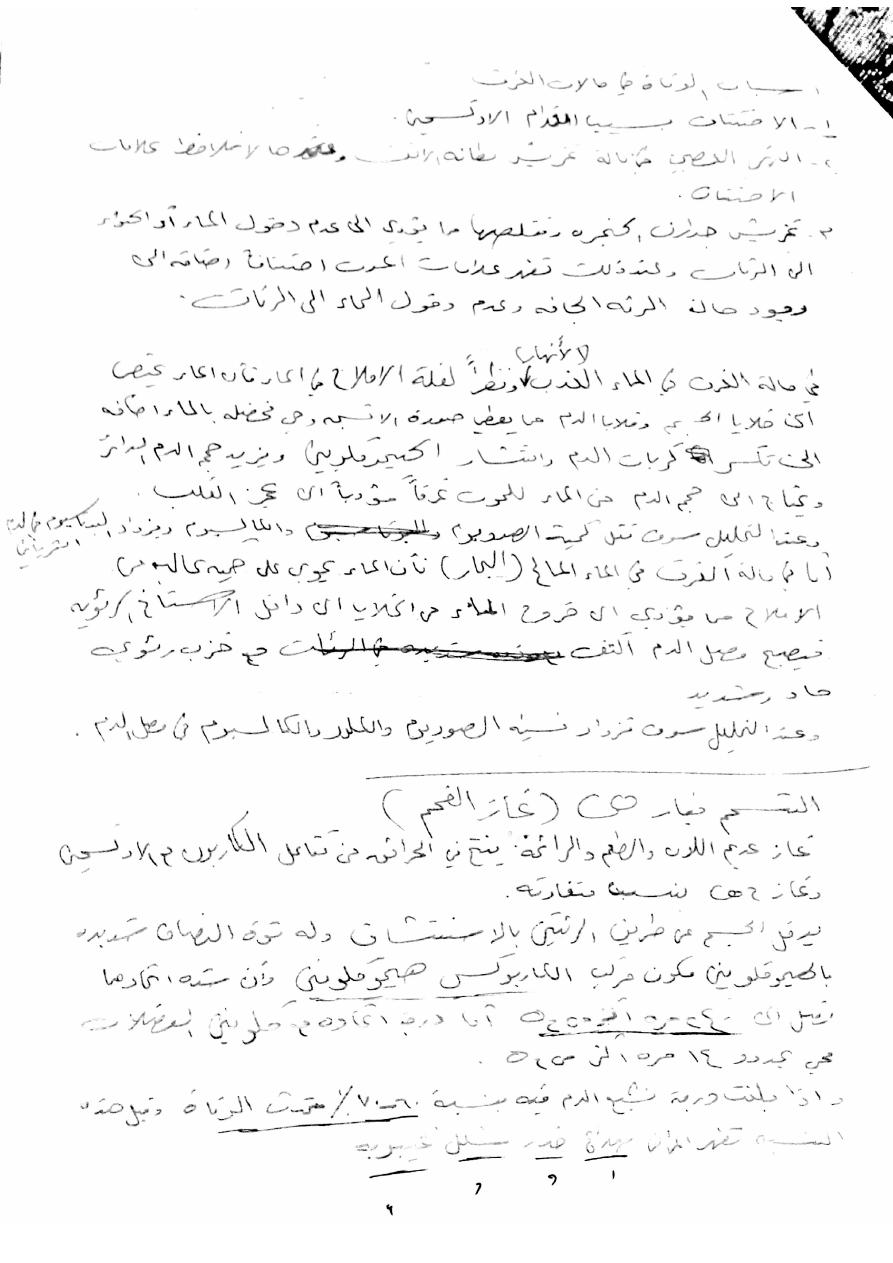 اسباب الوفاة في حالات الغرق
١- الاختناق بسبب انعدام الاوكسجين.
٢- النهي العصبي في حالة تخريش بطانة الانف وعندها لانلاحظ علامات
الاختناق.
٣- تخريش جدران الحنجره وتقلصها مما يؤدي الى عدم دخول الماء أو الهواء
الى الرئات وعند ذلك تظهر علامات الموت اختناقاً اضافه الى
وجود حالة الرئه الجافه وعدم دخول الماء الى الرئات.
في حالة الغرق في الماء العذب لالأنهار ونظراً لقلة الاملاح في الماء فأن الماء يمتص
الى خلايا الجسم وخلايا الدم مما يعطي صورة وهي بالماء اضافه
الى تكسر كريات الدم وانتشار الهيموغلوبين ويزيد حجم الدم الدائر
ويحتاج الى حجم الدم من الماء للموت غرقاً مؤدياً الى عجز القلب.
وعند التحليل سوف تقل كمية الصوديوم والكالسيوم ويزداد البوتاسيوم في الدم الشرياني
أما في حالة الغرق في الماء المالح (البحار) فأن الماء يحوي على كميه عاليه من
الاملاح مما يؤدي الى خروج الماء من الخلايا الى داخل الاسناخ الرئويه
فيصبح مصل الدم أكثف مع خزب رئوي
حاد وشديد
وعند التحليل سوف تزداد نسبة الصوديوم والكلور والكالسيوم في مصل الدم.
التسمم بغاز (غاز الفحم)
غاز عديم اللون والطعم والرائحة. ينتج في الحرائق من تفاعل الكاربون مع الاوكسجين
وغاز بنسب متفاوته.
يدخل الجسم عن طريق الرئتين بالاستنشاق وله قوة التصاق شديده
بالهيموغلوبين مكون مركب الكاربوكس هيموغلوبين وأن شدة اتحادها
تصل الى ٢٤٠ مره أكثر من أما درجة اتحاده مع غلوبين العضلات
هي بحدود ١٤ مره اكثر من
واذا بلغت درجة تشبع الدم فيه بنسبة ٦٠-٧٠٪ حدثت الوفاة وقبل هذه
النسبه تظهر اعراض خدر شلل غيبوبه